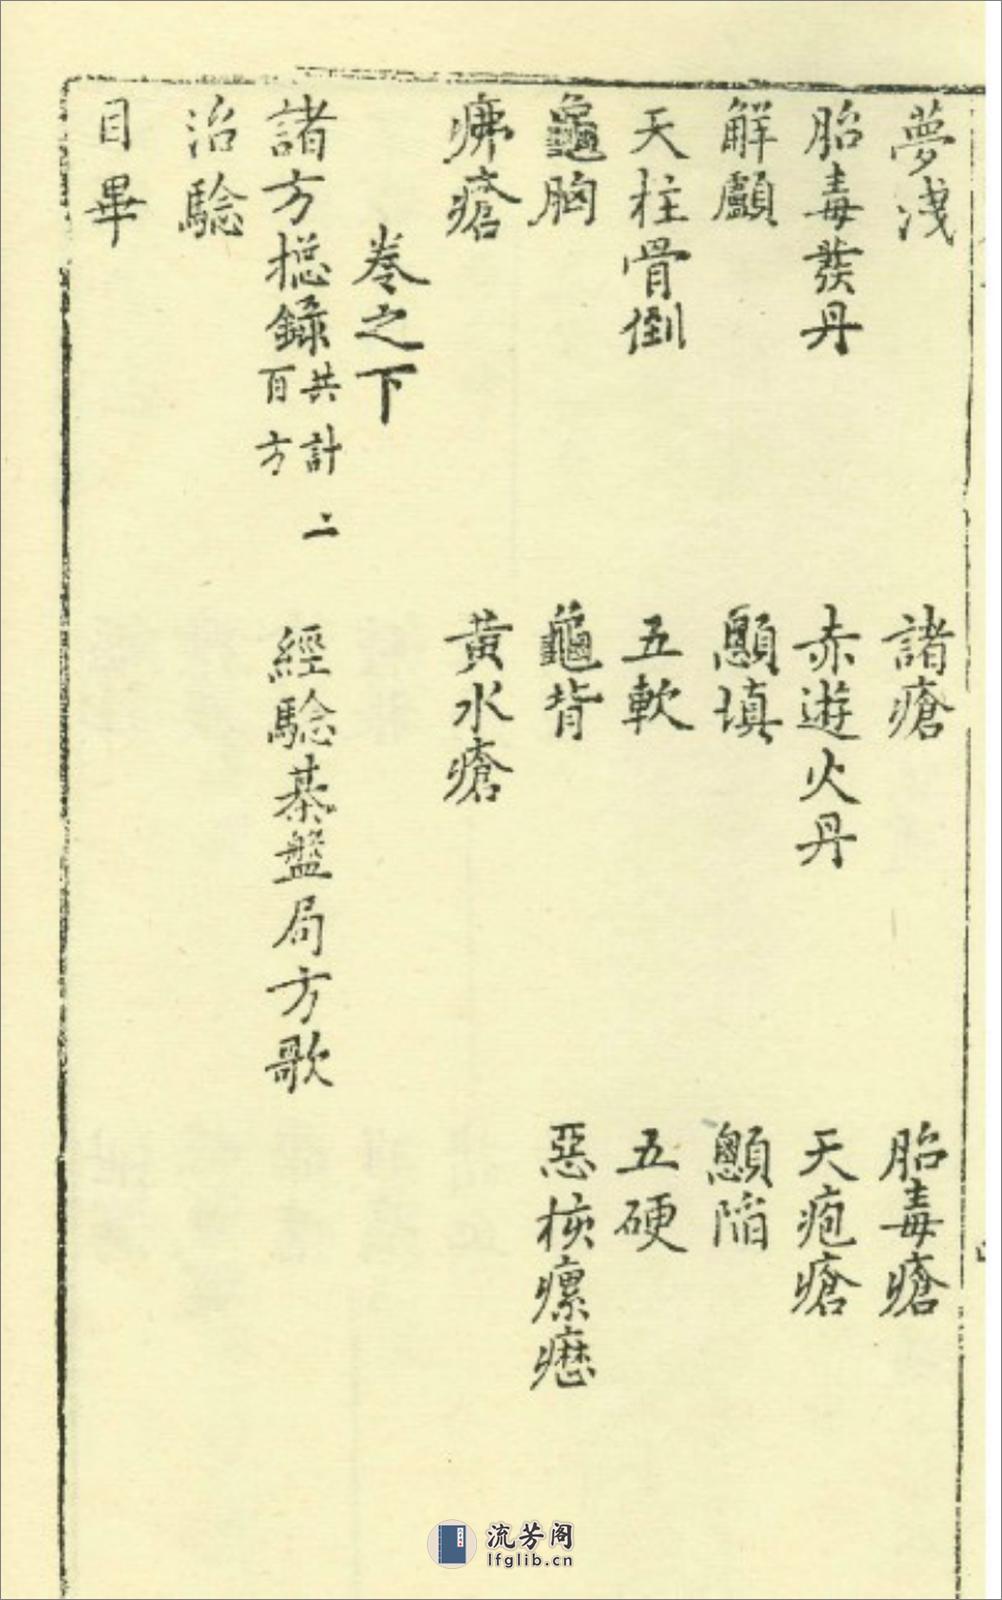 夢洩 諸瘡 胎毒瘡
胎毒發丹 赤遊火丹 天疱瘡
解顱 顖填 顖陷
天柱骨倒 五軟 五硬
龜胸 龜背 惡核瘰癧
疿瘡 黃水瘡
卷之下
諸方捴錄 共計二百方 經驗棊盤局方歌
治驗
目畢
流芳阁
lfglib.cn